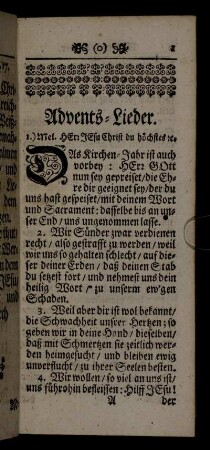 (o) 1
Advents-Lieder.
1.) Mel. HErr JEsu Christ du höchstes ꝛc.
DAs Kirchen-Jahr ist auch
vorbey: HErr GOtt
nun sey gepreiset/die Eh-
re dir geeignet sey/der du
uns hast gespeiset/mit deinem Wort
und Sacrament: dasselbe bis an un-
ser End/uns ungenommen lasse.
2. Wir Sünder zwar verdienen
recht/also gestrafft zu werden/weil
wir uns so gehalten schlecht/auf die-
ser deiner Erden/daß deinen Stab
du setzest fort/und nehmest uns dein
heilig Wort/zu unserm ew'gen
Schaden.
3. Weil aber dir ist wol bekannt/
die Schwachheit unsrer Hertzen; so
geben wir in deine Hand/dieselben/
daß mit Schmertzen sie zeitlich wer-
den heimgesucht/und bleiben ewig
unverflucht/zu ihrer Seelen besten.
4. Wir wollen/so viel an uns ist/
uns führohin befleissen: Hilff JEsu!
A der